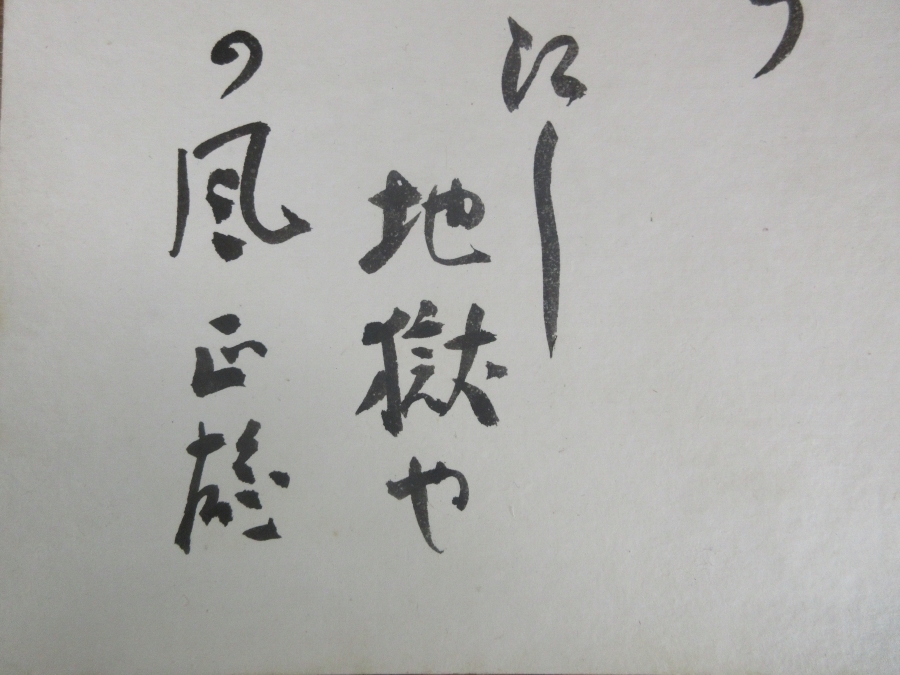 し
地獄や
の風 正雄